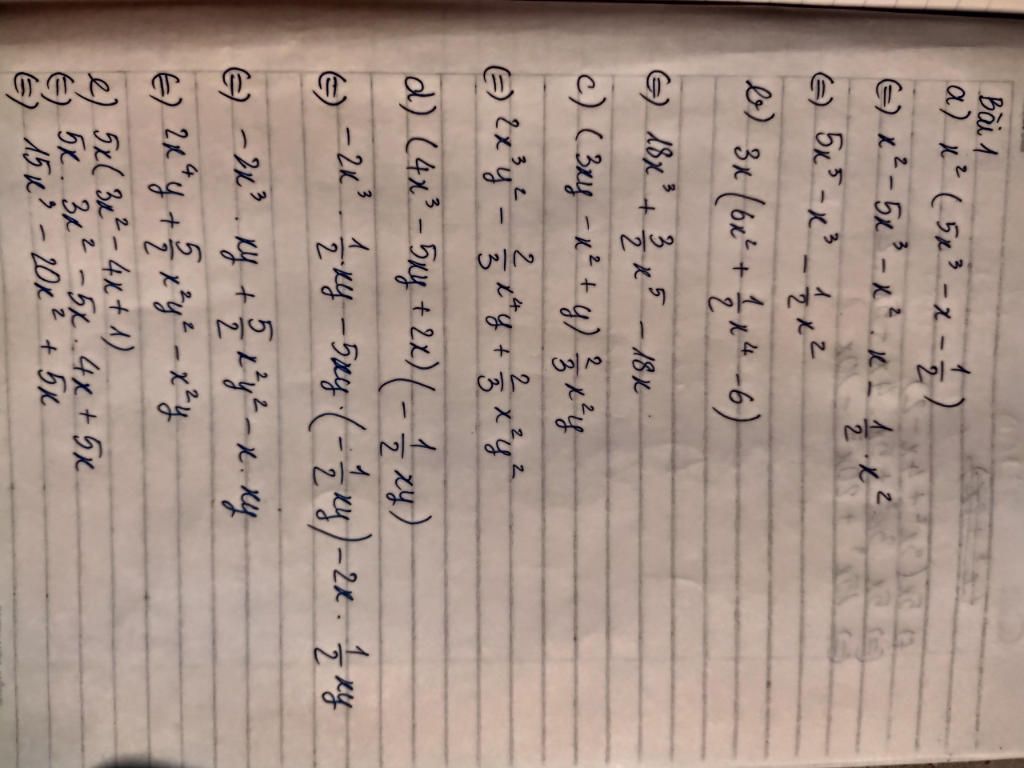 Bài 1
a) x² (5x³ - x - 1/2)
(=) x² - 5x³ - x² · x - 1/2 · x²
(=) 5x⁵ - x³ - 1/2 x²
b) 3x (6x² + 1/2 x⁴ - 6)
(=) 18x³ + 3/2 x⁵ - 18x
c) (3xy - x² + y) 2/3 x²y
(=) 2x³y² - 2/3 x⁴y + 2/3 x²y²
d) (4x³ - 5xy + 2x) (- 1/2 xy)
(=) -2x³ · 1/2 xy - 5xy · (- 1/2 xy) - 2x · 1/2 xy
(=) -2x³ · xy + 5/2 x²y² - x · xy
(=) 2x⁴y + 5/2 x²y² - x²y
e) 5x (3x² - 4x + 1)
(=) 5x · 3x² - 5x · 4x + 5x
(=) 15x³ - 20x² + 5x